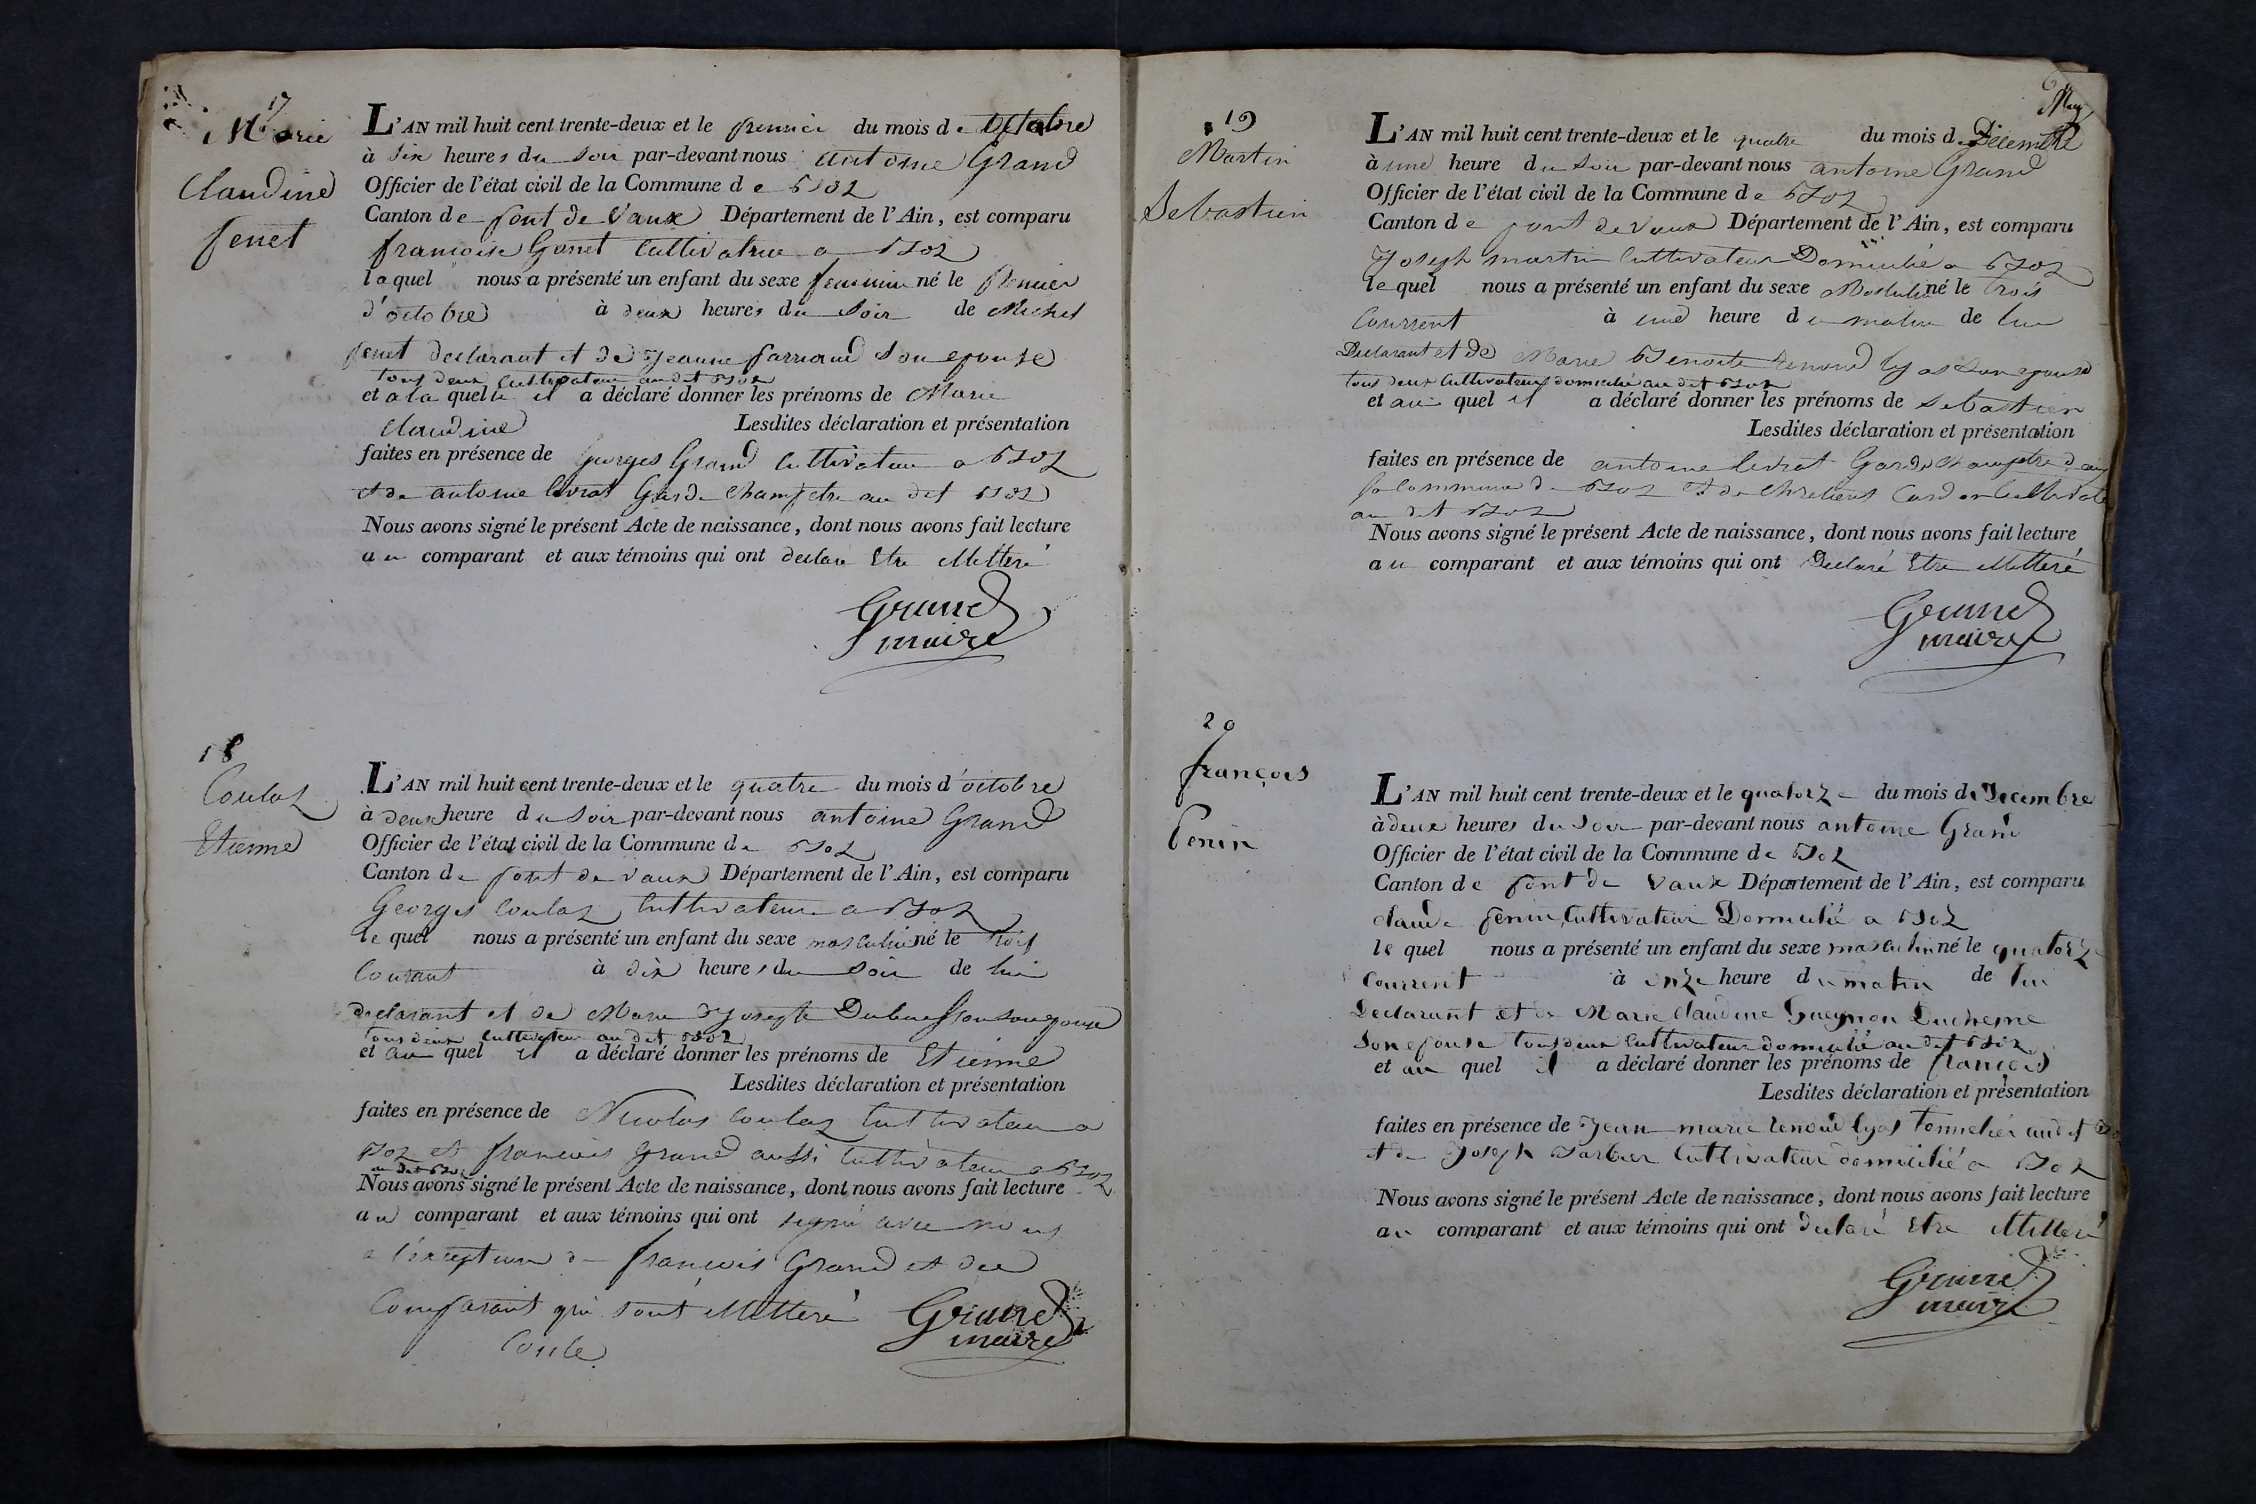 17
Marie
Claudine
fenet
L'AN mil huit cent trente-deux et le premier du mois de Octobre
à six heures du soir par-devant nous antoine Grand
Officier de l'état civil de la Commune de Boz
Canton de pont de vaux Département de l'Ain, est comparu
francoise Gonet Cultivatrice a Boz
laquel nous a présenté un enfant du sexe feminin né le premier
d'octobre à deux heures du soir de Michel
fenet declarant et de Jeanne farraud son epouse
tous deux cultivateur au dit Boz
et a la quelle il a déclaré donner les prénoms de Marie
claudine Lesdites déclaration et présentation
faites en présence de georges Grand cultivateur a Boz
et de antoine livrat Garde champetre au dit Boz
Nous avons signé le présent Acte de naissance, dont nous avons fait lecture
au comparant et aux témoins qui ont declare Etre illetteré
Grand
maire
18
Coulaz
Etienne
L'AN mil huit cent trente-deux et le quatre du mois d'octobre
à deux heure du soir par-devant nous antoine Grand
Officier de l'état civil de la Commune de Boz
Canton de pont de vaux Département de l'Ain, est comparu
Georges Coulaz Cultivateur a Boz
le quel nous a présenté un enfant du sexe masculin né le trois
Courant à dix heures du soir de lui
declarant et de Marie Josephe Dubuisson son epouse
tous deux cultivateur au dit Boz
et au quel il a déclaré donner les prénoms de Etienne
Lesdites déclaration et présentation
faites en présence de Nicolas coulaz cultivateur a
Boz et francois grand aussi cultivateur a Boz
au dit Boz
Nous avons signé le présent Acte de naissance, dont nous avons fait lecture
au comparant et aux témoins qui ont signé avec nous
a l'exception de françois Grand et du
Comparant qui sont illetteré
Grand
maire
Coule
19
Martin
Sebastien
L'AN mil huit cent trente-deux et le quatre du mois de Décembre
à une heure du soir par-devant nous antoine Grand
Officier de l'état civil de la Commune de Boz
Canton de pont de vaux Département de l'Ain, est comparu
Joseph martin Cultivateur Domicilié a Boz
le quel nous a présenté un enfant du sexe Masculin né le trois
Courrent à une heure du matin de lui
Declarant et de Marie Benoite renoud lyas son epouse
tous deux Cultivateurs domicilié au dit Boz
et au quel il a déclaré donner les prénoms de Sebastien
Lesdites déclaration et présentation
faites en présence de antoine livrat Garde champetre de
la commune de Boz et de chretiens Cardon Cultivate
au dit Boz
Nous avons signé le présent Acte de naissance, dont nous avons fait lecture
au comparant et aux témoins qui ont Declaré Etre illetteré
Grand
maire
20
françois
fenin
L'AN mil huit cent trente-deux et le quatorze du mois de Decembre
à deux heures du soir par-devant nous antoine Grand
Officier de l'état civil de la Commune de Boz
Canton de pont de vaux Département de l'Ain, est comparu
claude fenin, Cultivateur Domicilié a Boz
le quel nous a présenté un enfant du sexe masculin né le quatorze
Courrent à onze heure du matin de lui
Declarant et de Marie claudine Guegnon Duchesne
Son epouse tous deux Cultivateur domicilié au dit Boz
et au quel il a déclaré donner les prénoms de françois
Lesdites déclaration et présentation
faites en présence de Jean marie renoud lyas tonnelier au dit Boz
et de Joseph Barbier Cultivateur domicilié a Boz
Nous avons signé le présent Acte de naissance, dont nous avons fait lecture
au comparant et aux témoins qui ont declaré Etre illetteré
Grand
maire